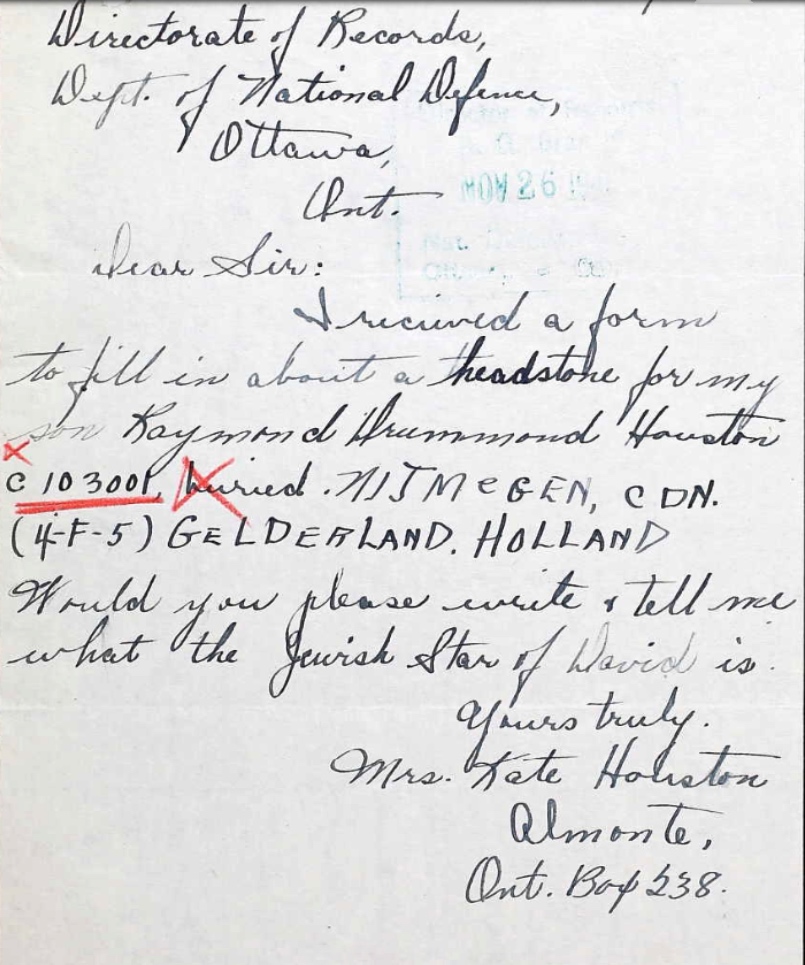 Directorate of Records,
Dept. of National Defence,
Ottawa,
Ont.
NOV 26
Dear Sir:
I received a form
to fill in about a headstone for my
son Raymond Drummond Houston
C 103001, buried. NIJMeGEN, CDN.
(4-F-5) GELDERLAND. HOLLAND
Would you please write & tell me
what the Jewish Star of David is.
Yours truly.
Mrs. Kate Houston
Almonte,
Ont. Box 238.